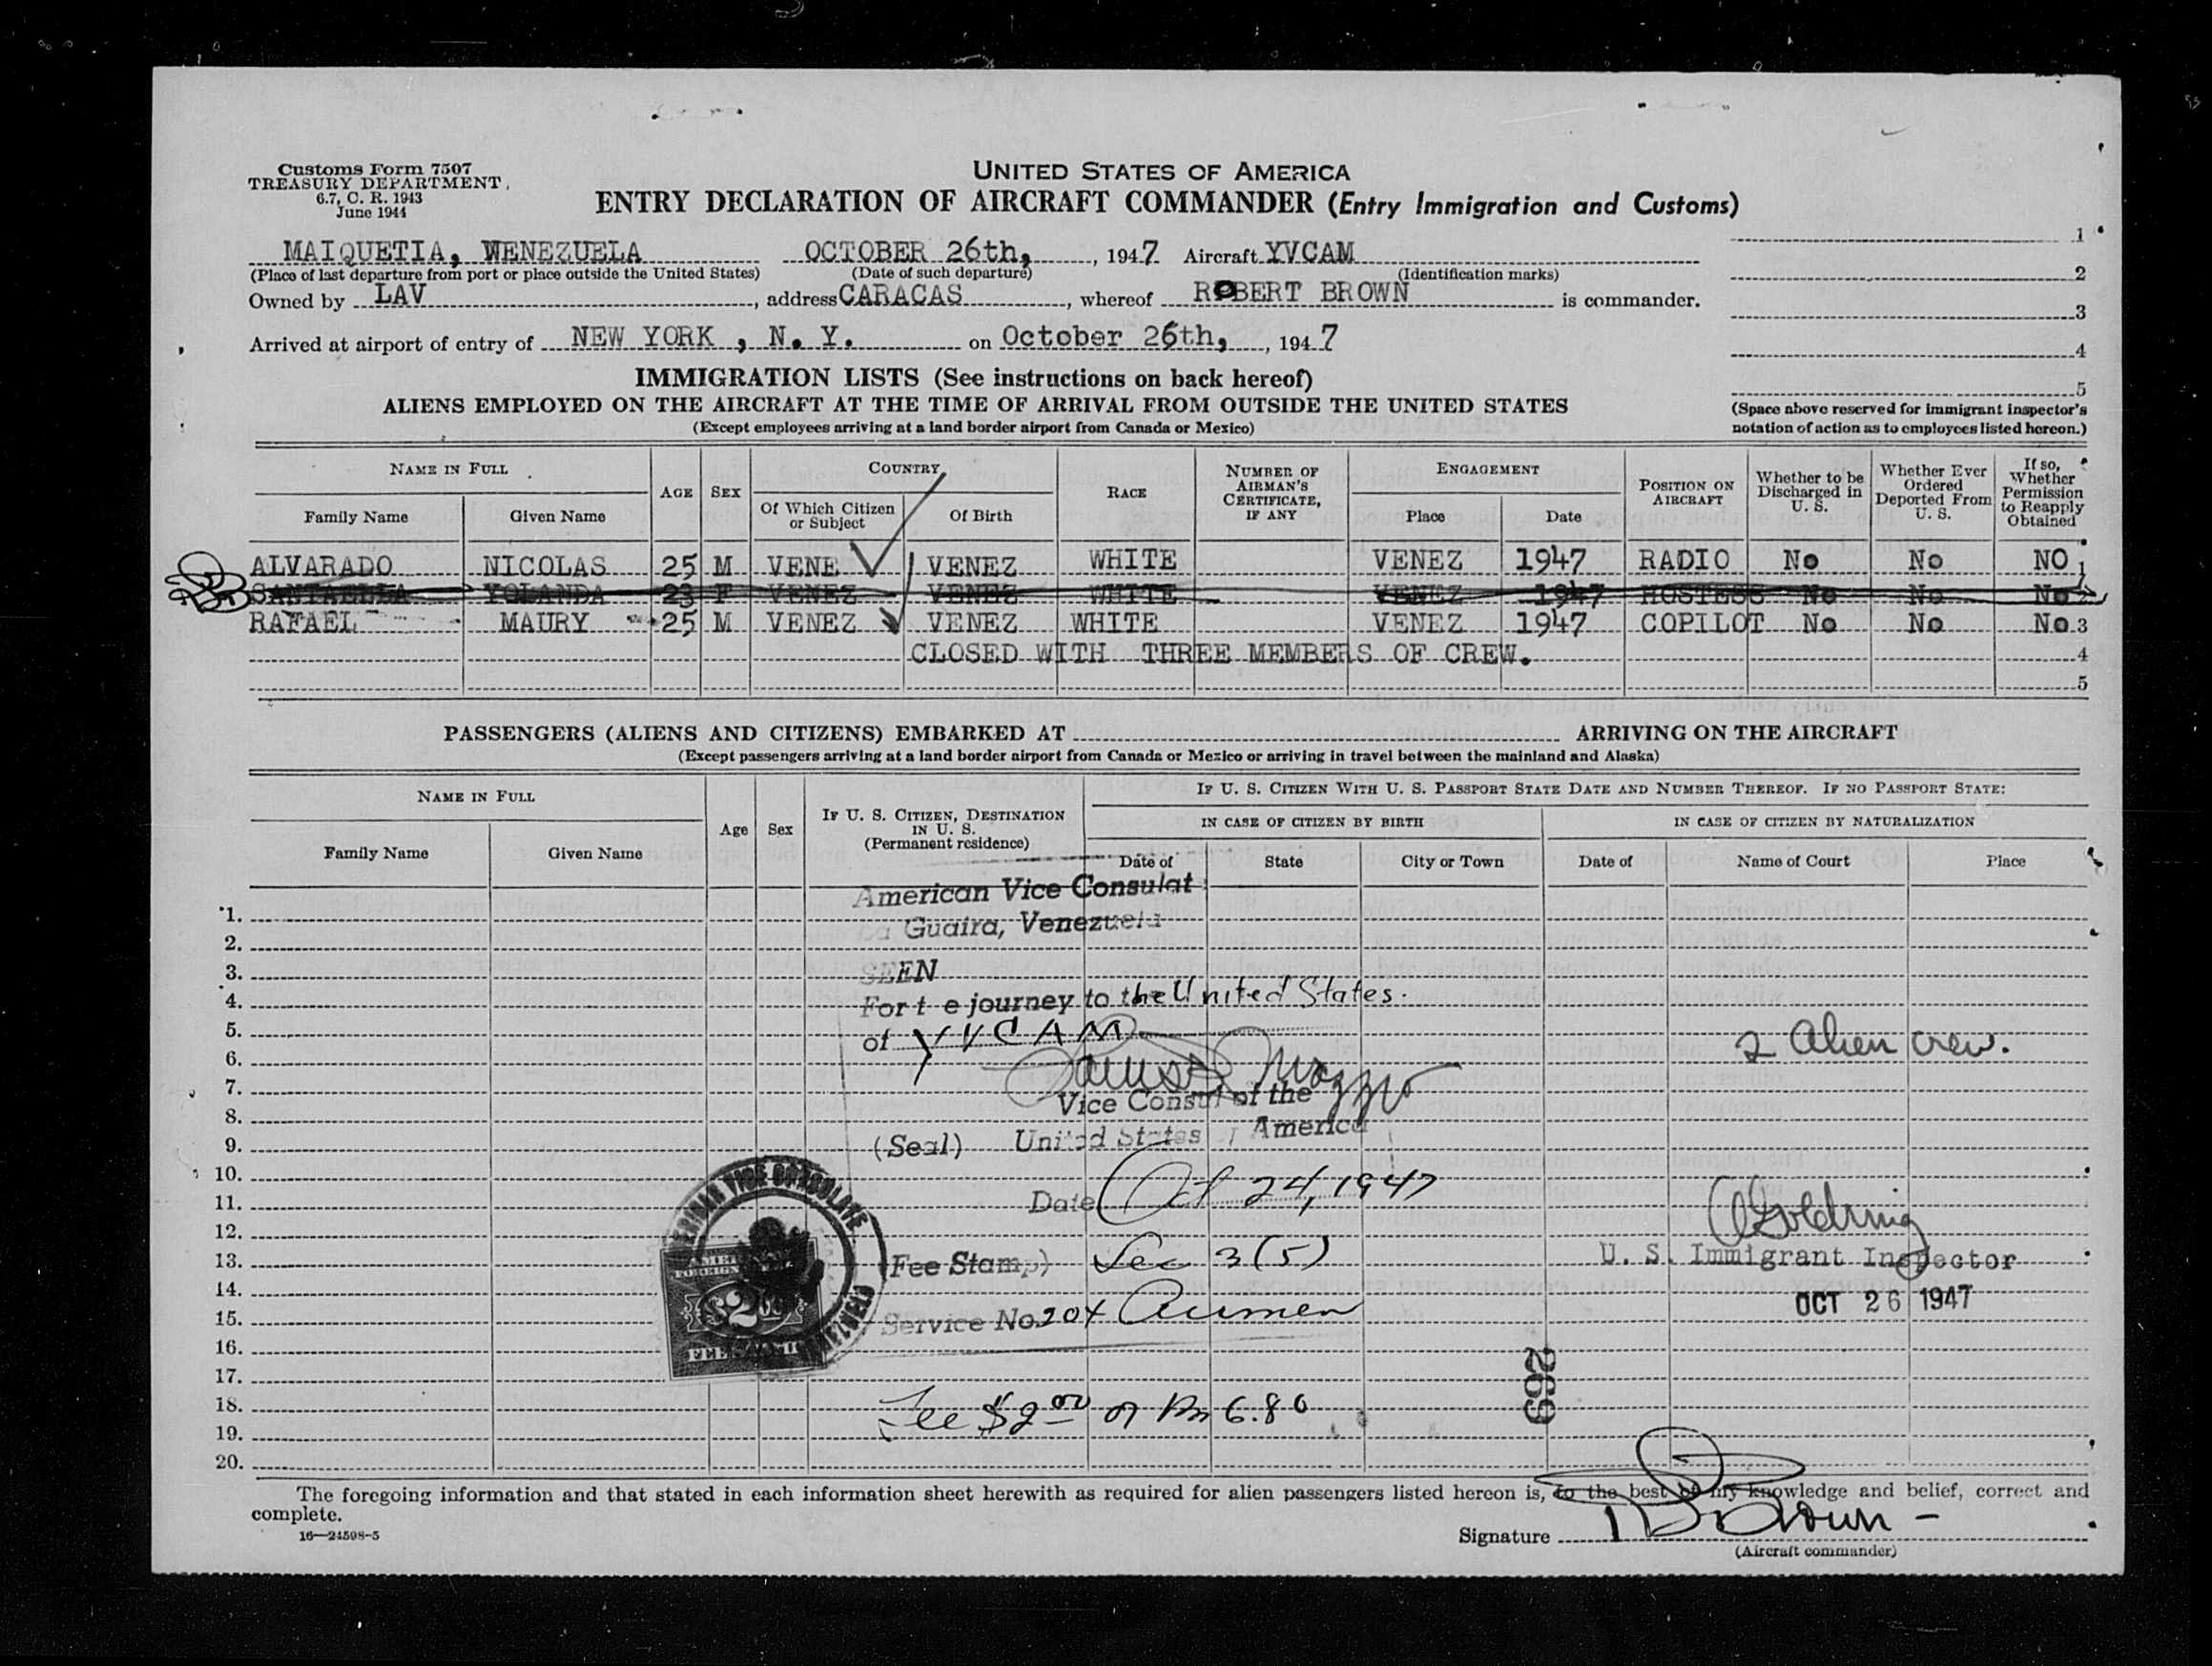 Customs Form 7507
TREASURY DEPARTMENT
6.7, C. R. 1943
June 1944
UNITED STATES OF AMERICA
ENTRY DECLARATION OF AIRCRAFT COMMANDER (Entry Immigration and Customs)
MAIQUETIA, WENEZUELA OCTOBER 26th, , 1947 Aircraft YVCAM
(Place of last departure from port or place outside the United States) (Date of such departure) (Identification marks)
Owned by LAV , address CARACAS , whereof ROBERT BROWN is commander.
Arrived at airport of entry of NEW YORK , N. Y. on October 26th, , 1947
1
2
3
4
5
(Space above reserved for immigrant inspector's
notation of action as to employees listed hereon.)
IMMIGRATION LISTS (See instructions on back hereof)
ALIENS EMPLOYED ON THE AIRCRAFT AT THE TIME OF ARRIVAL FROM OUTSIDE THE UNITED STATES
(Except employees arriving at a land border airport from Canada or Mexico)
NAME IN FULL
Family Name Given Name
AGE SEX
COUNTRY
Of Which Citizen or Subject Of Birth
RACE
NUMBER OF AIRMAN'S CERTIFICATE, IF ANY
ENGAGEMENT
Place Date
POSITION ON AIRCRAFT
Whether to be Discharged in U. S.
Whether Ever Ordered Deported From U. S.
If so, Whether Permission to Reapply Obtained
ALVARADO NICOLAS 25 M VENE VENEZ WHITE VENEZ 1947 RADIO No No NO 1
SANTAELLA YOLANDA 23 F VENEZ VENEZ WHITE VENEZ 1947 HOSTESS No No No 2
RAFAEL MAURY 25 M VENEZ VENEZ WHITE VENEZ 1947 COPILOT No No No 3
CLOSED WITH THREE MEMBERS OF CREW. 4
5
PASSENGERS (ALIENS AND CITIZENS) EMBARKED AT ARRIVING ON THE AIRCRAFT
(Except passengers arriving at a land border airport from Canada or Mexico or arriving in travel between the mainland and Alaska)
NAME IN FULL
Family Name Given Name
Age Sex
IF U. S. CITIZEN, DESTINATION IN U. S.
(Permanent residence)
IF U. S. CITIZEN WITH U. S. PASSPORT STATE DATE AND NUMBER THEREOF. IF NO PASSPORT STATE:
IN CASE OF CITIZEN BY BIRTH IN CASE OF CITIZEN BY NATURALIZATION
Date of State City or Town Date of Name of Court Place
American Vice Consulat
1.
La Guaira, Venezuela
2.
3. SEEN
4. For t e journey to the United States.
5. of YVCAM
2 Alien crew.
6.
7. Vice Consul of the
8.
9. (Seal) United States of America
10.
11. Date Oct 24, 1947
12. Goldring
13. (Fee Stamp) Sec 3(5) U. S. Immigrant Inspector
14. OCT 26 1947
15. Service No. 204
16.
17.
18. Fee $2.00 6.80
19.
20.
AMERICAN VICE CONSULATE
$2
269
The foregoing information and that stated in each information sheet herewith as required for alien passengers listed hereon is, to the best of my knowledge and belief, correct and
complete.
16—24598-5
Signature R Brown
(Aircraft commander)